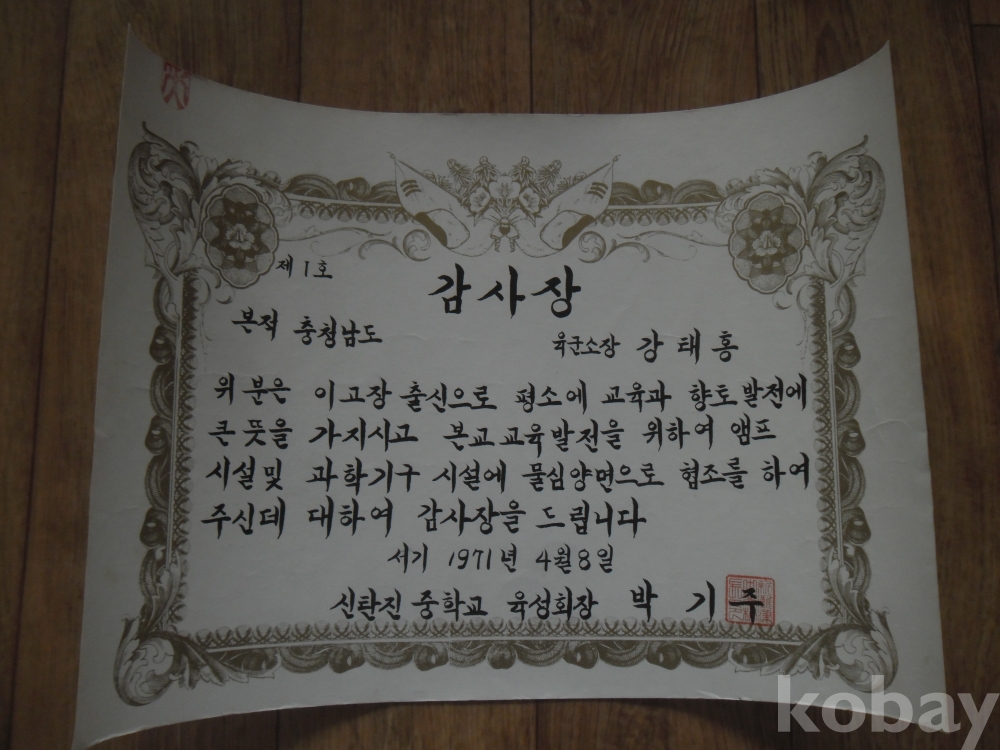 제 1 호
감사장
본적 충청남도
육군소장 강태홍
위 분은 이 고장 출신으로 평소에 교육과 향토발전에
큰 뜻을 가지시고 본교 교육발전을 위하여 앰프
시설및 과학기구 시설에 물심양면으로 협조를 하여
주신데 대하여 감사장을 드립니다
서기 1971년 4월 8일
신탄진 중학교 육성회장 박 기 주
kobay